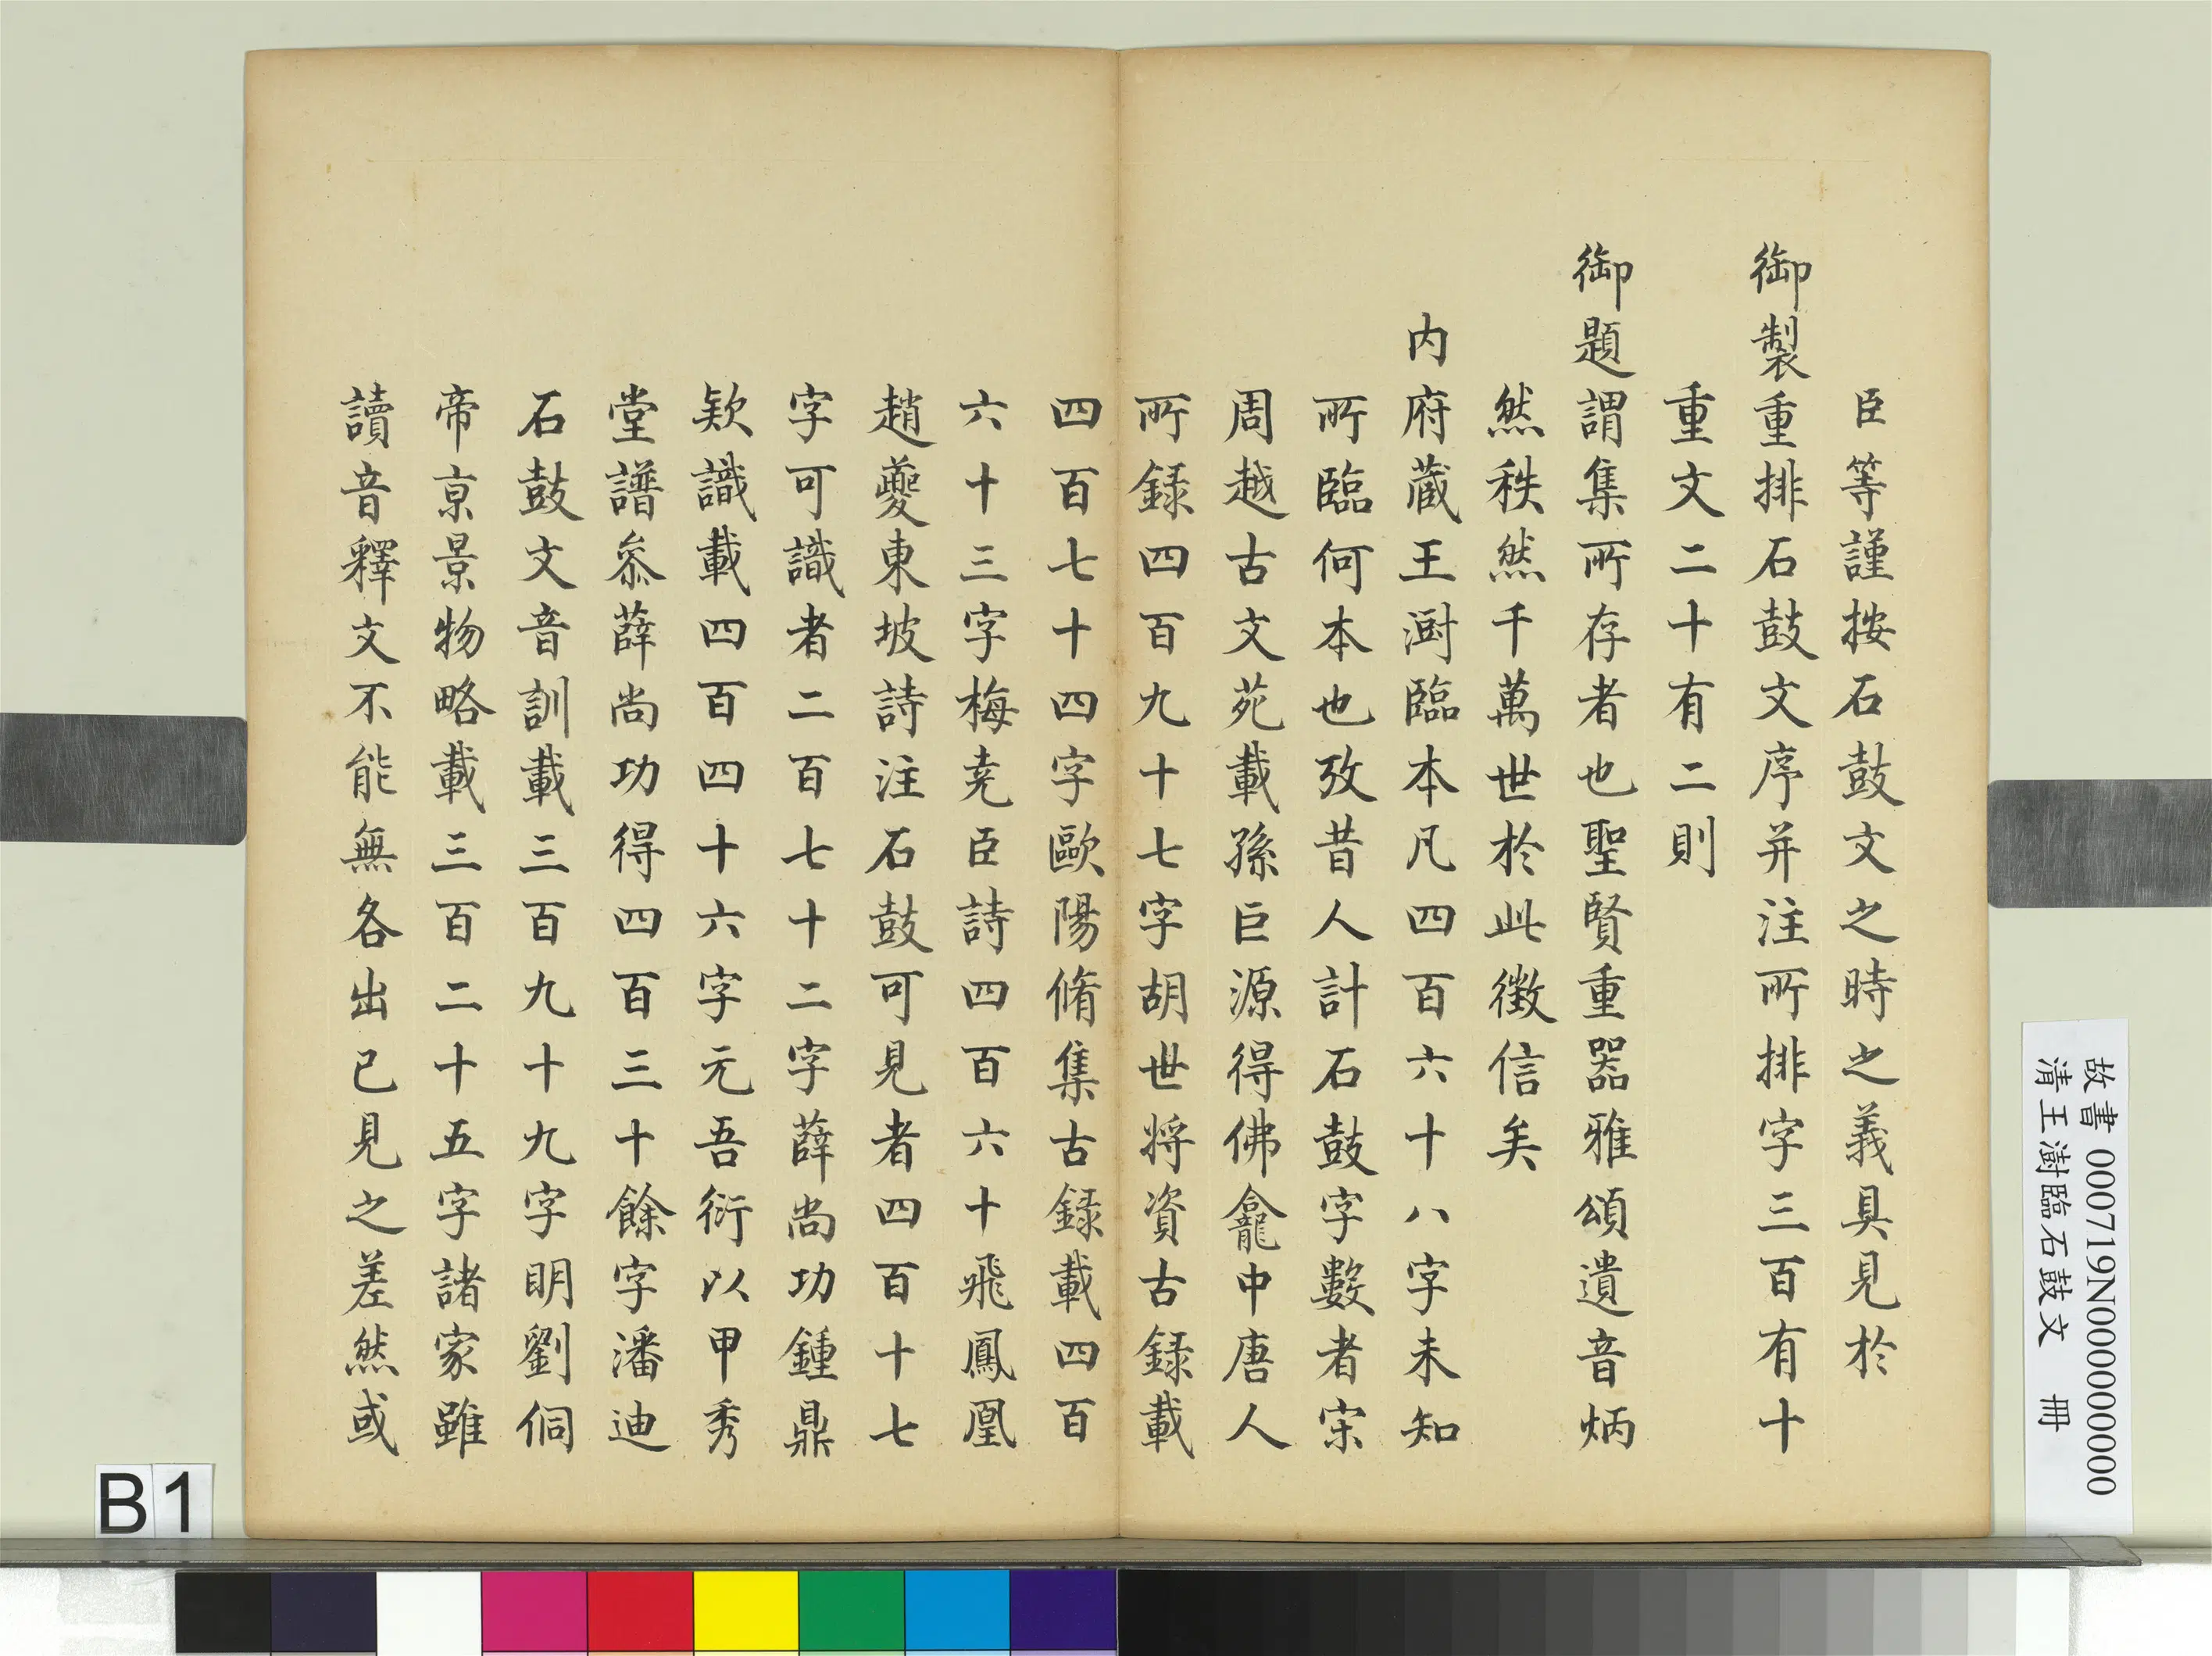 臣等謹按石鼓文之時之義具見於
御製重排石鼓文序并注所排字三百有十
重文二十有二則
御題謂集所存者也聖賢重器雅頌遺音炳
然秩然千萬世於此徵信矣
内府蔵王澍臨本凡四百六十八字未知
所臨何本也攷昔人計石鼓字數者宋
周越古文苑載孫巨源得佛龕中唐人
所録四百九十七字胡世将資古録載
四百七十四字歐陽脩集古録載四百
六十三字梅堯臣詩四百六十飛鳳凰
趙夔東坡詩注石鼓可見者四百十七
字可識者二百七十二字薛尚功鍾鼎
欵識載四百四十六字元吾衍以甲秀
堂譜叅薛尚功得四百三十餘字潘迪
石鼓文音訓載三百九十九字明劉侗
帝京景物略載三百二十五字諸家雖
讀音釋文不能無各出已見之差然或
故書 000719N000000000
清王澍臨石鼓文 冊
B1